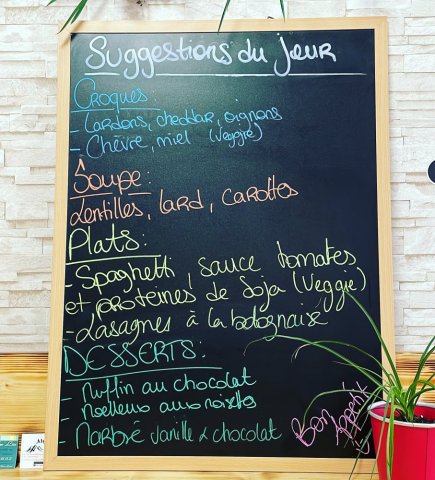 Suggestions du jour
Croques
- Lardons, cheddar, oignons
- Chèvre, miel (Veggie)
Soupe:
Lentilles, lard, carottes
Plats:
- Spaghetti, sauce tomates
et protéines de soja (Veggie)
- Lasagnes à la bolognaise
DESSERTS:
- Muffin au chocolat
Moelleux aux noisettes
- Marbré Vanille & chocolat
Bon Appétit